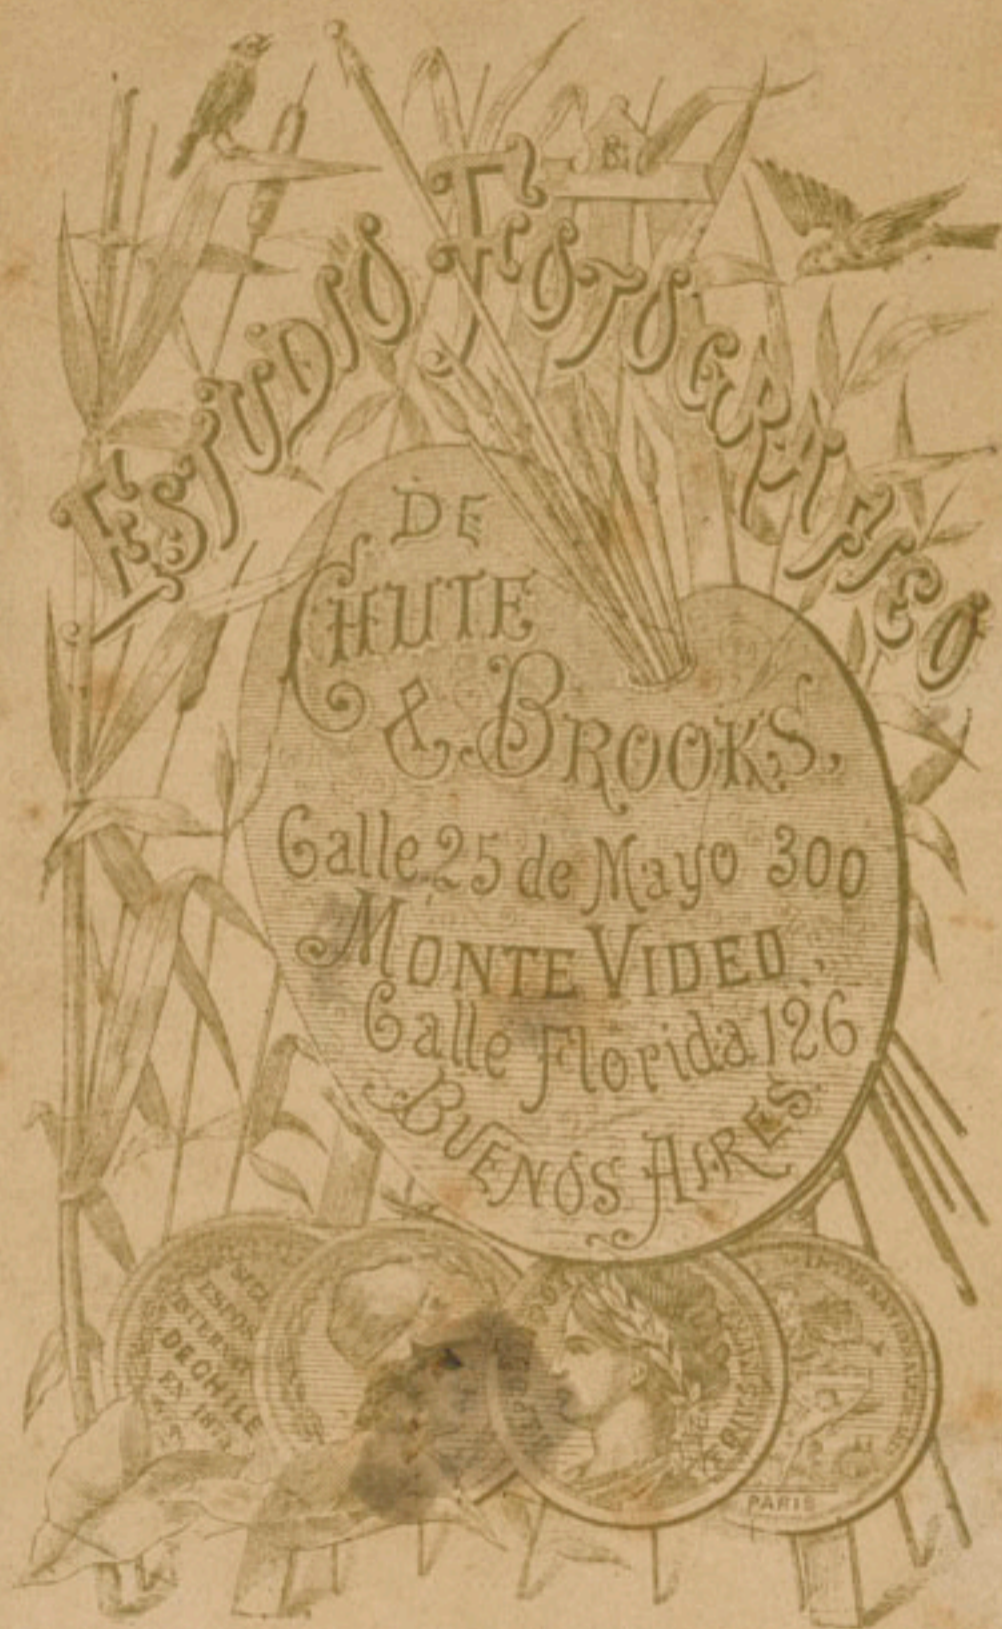 ESTUDIO FOTOGRAFICO
DE
CHUTE
& BROOKS.
Calle 25 de Mayo 300
MONTEVIDEO.
Calle Florida 126
BUENOS AIRES.
DE CHILE
EN 187
PARIS